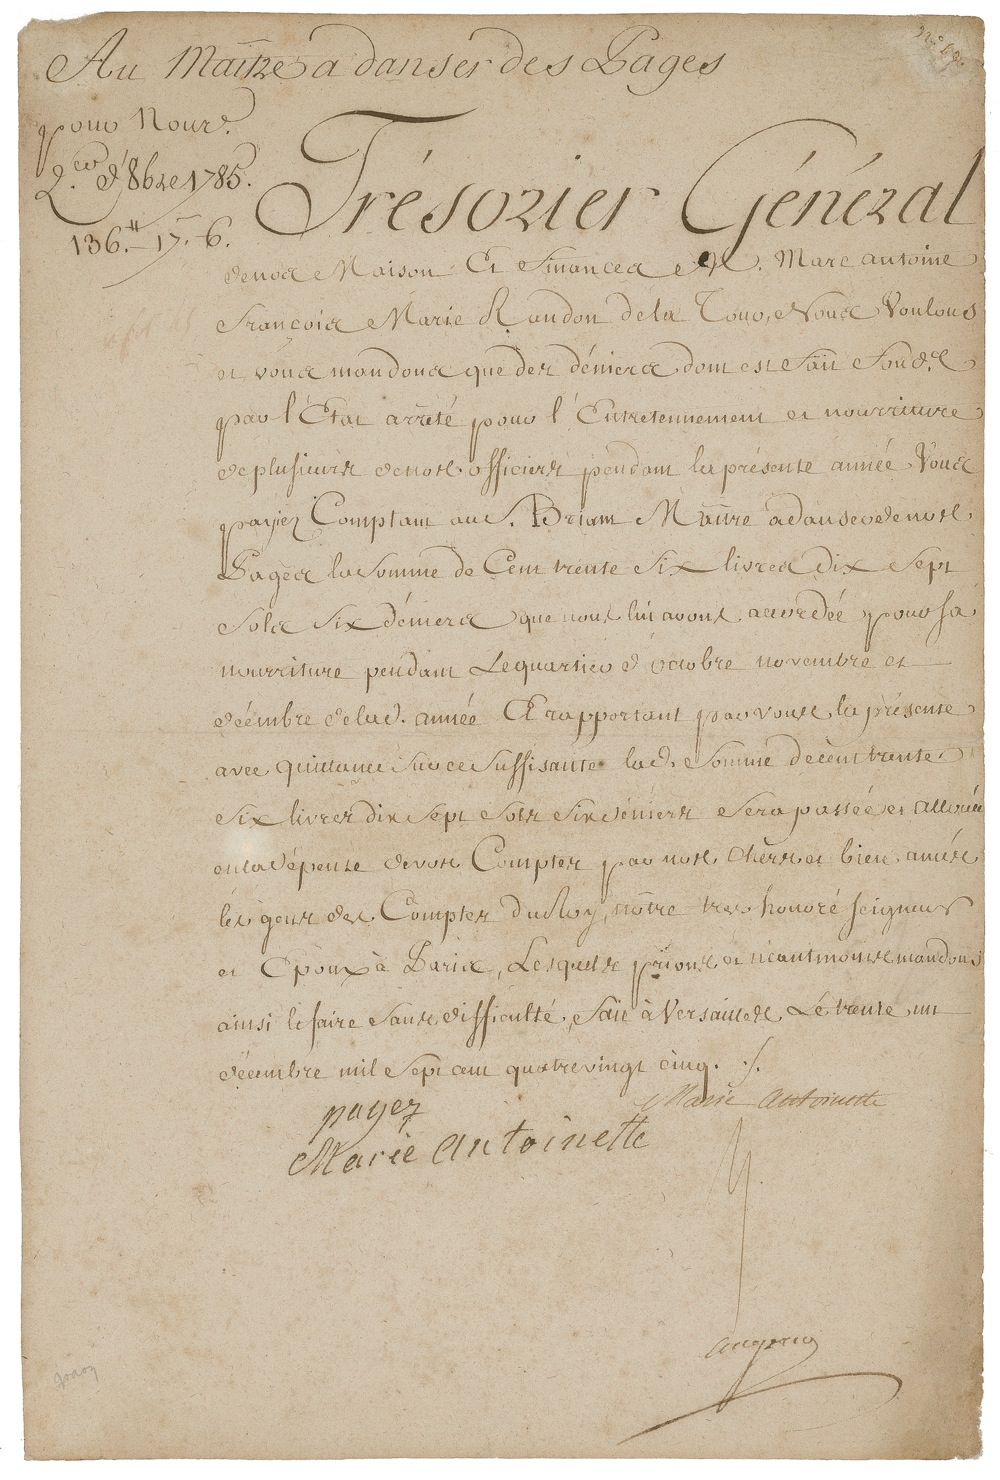 Au Maitre a danser des Pages
pour Nourre.
Qer. d'8bre 1785.
136.tt 17.s 6.
Trésorier Général
de nos Maison Et finances M. Marc antoine
françois Marie Randon de la Tour, Nous Voulons
et vous mandons que des déniers dont est fait fonds
par l'Etat arrêté pour l'Entretennement et nourriture
de plusieurs de nos officiers pendant la présente année Vous
payiez Comptant au S. Briant Maitre a danser de nos
Pages la somme de Cent trente Six livres dix Sept
Sols Six déniers que nous lui avons accordée pour sa
nourriture pendant Le quartier d'octobre novembre et
décembre de lad. année Et rapportant par vous la présente
avec quittance sur ce suffisante lad. Somme de cent trente
Six livres dix sept sols six déniers sera passée et allouée
en la dépense de vos Comptes par nos chers et bien amés
les gens des Comptes du Roy, nôtre très honoré seigneur
et Epoux à Paris, Lesquels prions et néantmoins mandons
ainsi le faire sans difficulté, fait à Versailles Le trente un
décembre mil sept cent quatre vingt cinq. ./.
payez
Marie Antoinette
Marie Antoinette
Augeard